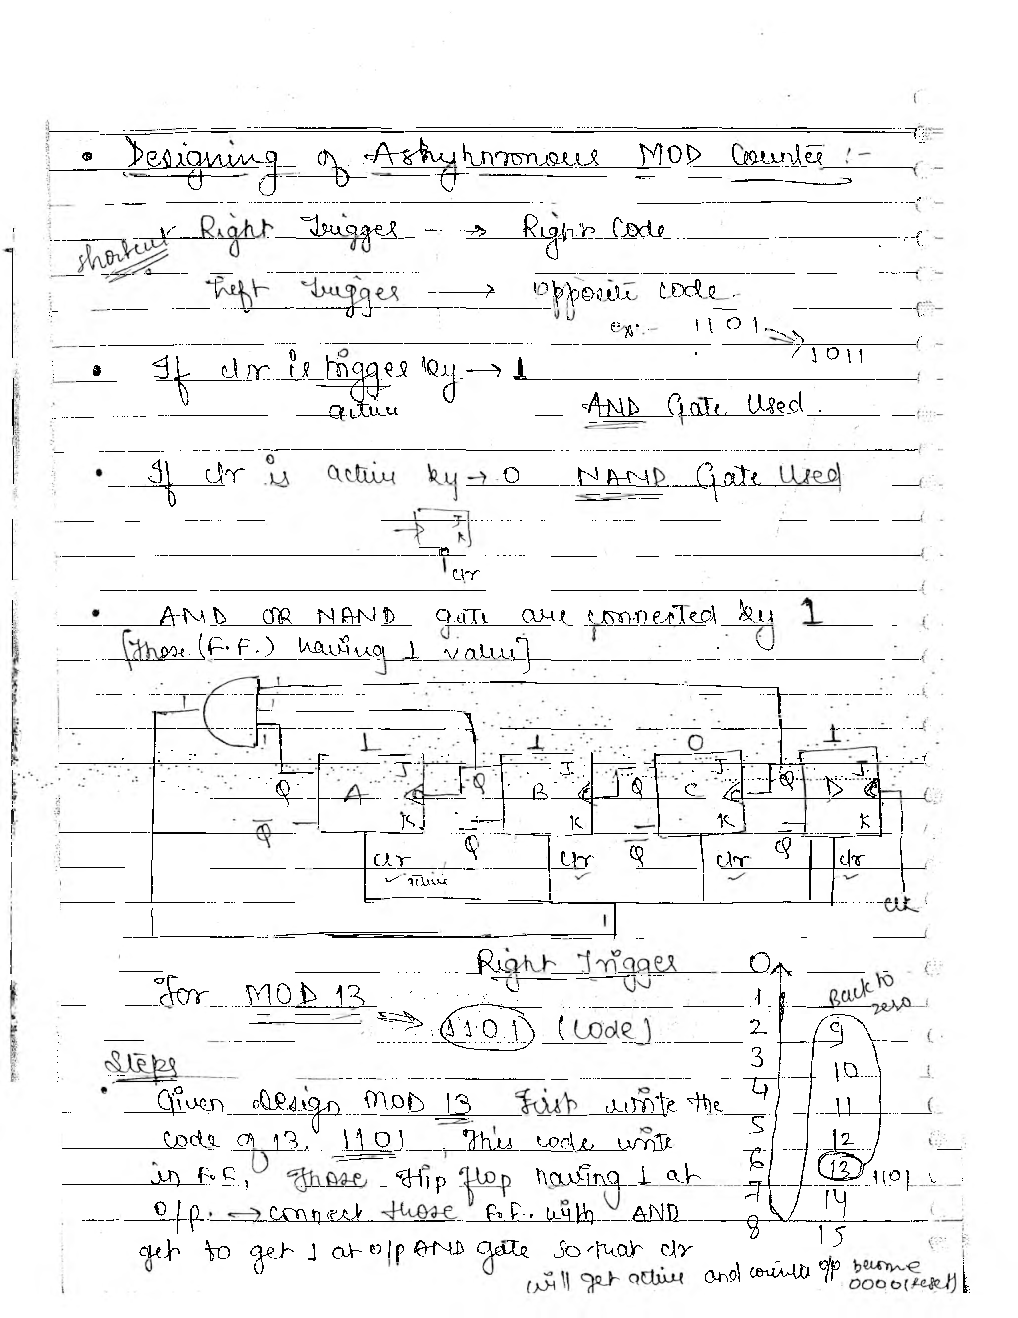 • Designing of Ashyhnronous MOD Counter :-
shortcut Right Trigger → Right Code
Left Trigger → opposite code.
ex:- 1101 → 1011
• If clr is trigger by → 1
active AND Gate Used.
• If clr is active by → 0 NAND Gate Used
J
K
clr
• AND OR NAND gate are connected by 1
[those (F.F.) having 1 value]
1 1
1
1
1 1 0 1
Q A J Q B J Q C J Q D J
Q̅ K Q̅ K Q̅ K Q̅ K
clr clr clr clr
active
clk
1
Right Trigger
for MOD 13
→ 1101 (code)
Steps
• Given design MOD 13 First write the
code of 13. 1101, This code write
in F.F, those flip flop having 1 at
o/p. → connect those F.F. with AND
get to get 1 at o/p AND gate so that clr
will get active and counter o/p become
0000 (reset)
0
1
2
3
4
5
6
7
8
Back to
zero
9
10
11
12
13 1101
14
15